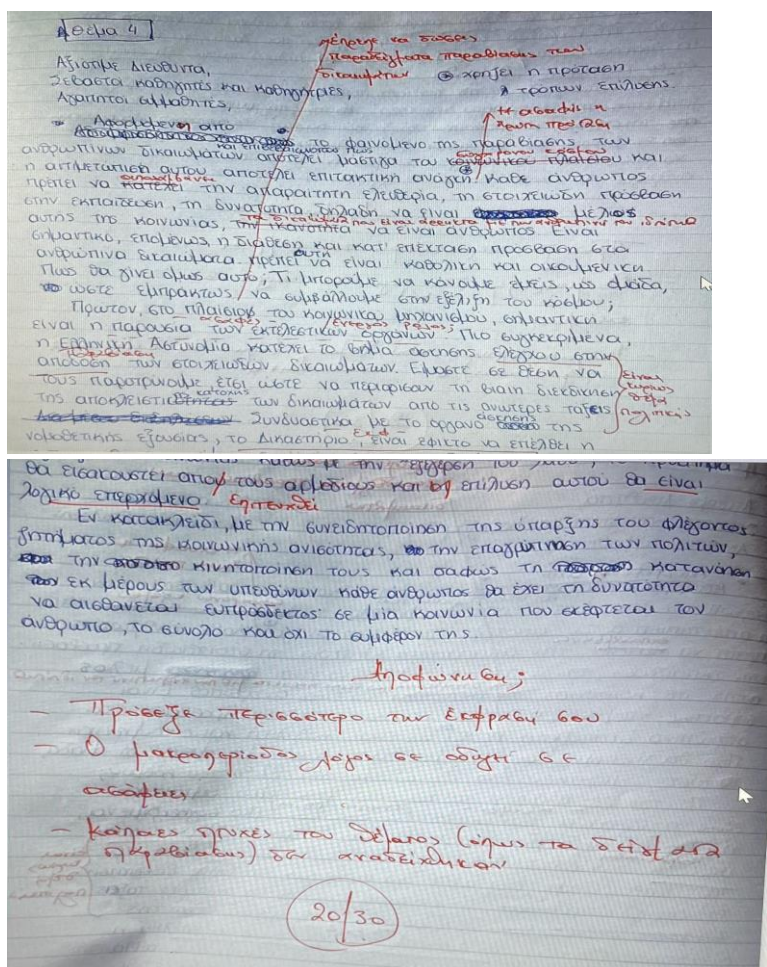 Θέμα 4
έπρεπε να δώσεις
παραδείγματα παραβίασης των
δικαιωμάτων
χρήζει η πρόταση
τρόπων επίλυσης.
Αξιότιμε Διευθυντά,
Σεβαστοί καθηγητές και καθηγήτριες,
Αγαπητοί συμμαθητές,
Αφορμώμενη από
το φαινόμενο της παραβίασης των
ανθρωπίνων δικαιωμάτων αποτελεί μάστιγα του κοινωνικού πλαισίου και
η αντιμετώπιση αυτού αποτελεί επιτακτική ανάγκη. Κάθε άνθρωπος
απολαμβάνει
πρέπει να κατέχει την απαραίτητη ελευθερία, τη στοιχειώδη πρόσβαση
στην εκπαίδευση, τη δυνατότητα δηλαδή να είναι μέλος
αυτής της κοινωνίας, την ικανότητα να είναι άνθρωπος. Είναι
σημαντικό, επομένως, η διάθεση και κατ' επέκταση πρόσβαση στα
ανθρώπινα δικαιώματα. Πρέπει αυτή να είναι καθολική και οικουμενική
Πώς θα γίνει όμως αυτό; Τι μπορούμε να κάνουμε εμείς, ως ομάδα,
ώστε εμπράκτως να συμβάλλουμε στην εξέλιξη του κόσμου;
Πρώτον, στο πλαίσιο του κοινωνικού μηχανισμού, σημαντική
ασαφές ενεργός ρόλος;
είναι η παρουσία των εκτελεστικών οργάνων. Πιο συγκεκριμένα,
η Ελληνική Αστυνομία κατέχει το βήμα άσκησης ελέγχου στην
απόδοση των στοιχειωδών δικαιωμάτων. Είμαστε σε θέση να
τους παροτρύνουμε έτσι ώστε να περιορίσουν τη βίαιη διεκδίκηση
κατοχής
της αποκλειστικής των δικαιωμάτων από τις ανώτερες τάξεις
είναι
κυρίως
θέμα
πολιτικής
Συνδυαστικά με το όργανο άσκησης της
νομοθετικής εξουσίας, το Δικαστήριο, είναι εφικτό να επέλθει η
με την εξέγερση του λαού, το πρόβλημα
θα εισακουστεί από τους αρμόδιους και η επίλυση αυτού θα είναι
λογικό επερχόμενο. επιτευχθεί
Εν κατακλείδι, με την συνειδητοποίηση της ύπαρξης του φλέγοντος
ζητήματος της κοινωνικής ανισότητας, την επαγρύπνηση των πολιτών,
την κινητοποίηση τους και σαφώς τη κατανόηση
εκ μέρους των υπευθύνων κάθε άνθρωπος θα έχει τη δυνατότητα
να αισθάνεται ευπρόσδεκτος σε μία κοινωνία που σκέφτεται τον
άνθρωπο, το σύνολο και όχι το συμφέρον της.
Αποφώνηση;
- Πρόσεξε περισσότερο την έκφρασή σου
- Ο μακροπερίοδος λόγος σε οδηγεί σε
ασάφειες
- Κάποιες πτυχές του θέματος (όπως τα δείγματα
παραβίασης) δεν αναδείχθηκαν
20/30